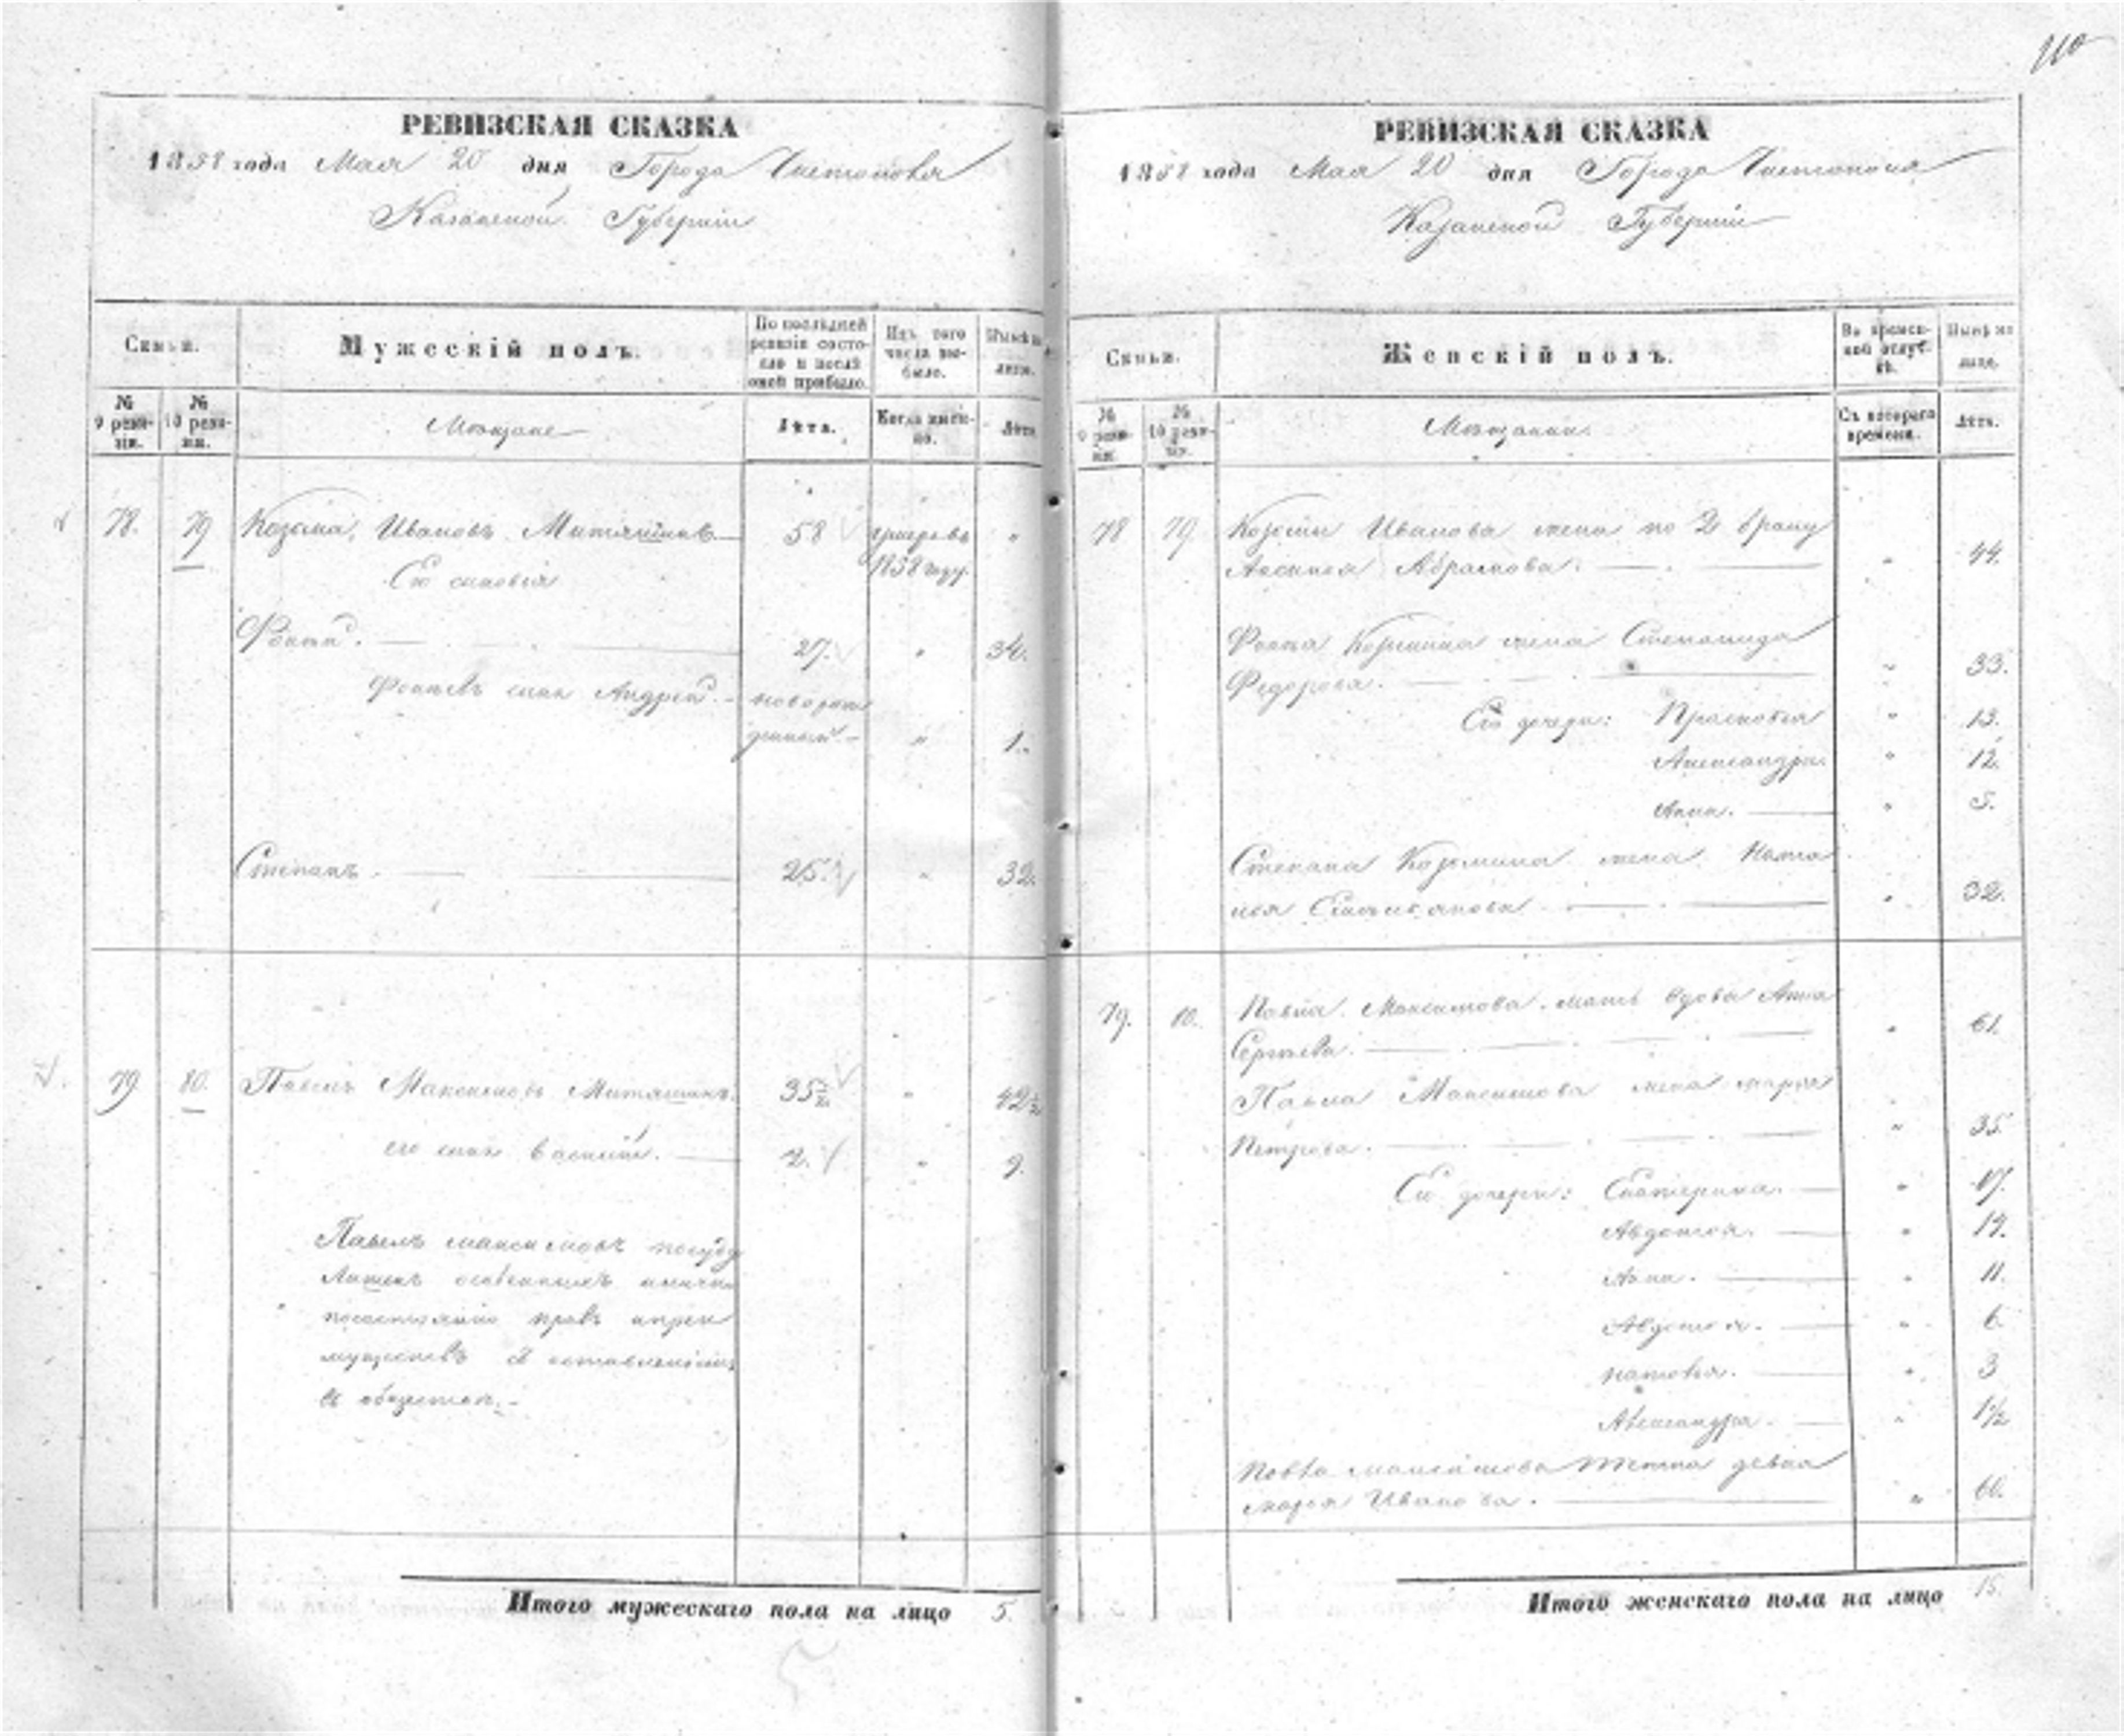 110
РЕВИЗСКАЯ СКАЗКА
1858 года Мая 20 дня Города Чистополя
Казанской Губернiи
Семьи.
Мужескiй полъ.
По последней ревизiи состояло и послѣ оной прибыло.
Изъ того числа выбыло.
Нынѣ на лицо.
№ 9 ревизiи.
№ 10 ревизiи.
Мѣщане
Лѣта.
Когда именно.
Лѣта
78. 79 Козьма Ивановъ Митяшинъ 58 1858 году "
Его сыновья
Фока. 27. " 34.
Фокиевъ сынъ Андрей. новорож
денный. " 1.
Степанъ. 25. " 32.
79 80. Павелъ Максимовъ Митяшинъ. 35½ " 42½
его сынъ Василiй. 2. " 9.
Павелъ Максимовъ по суду
лишенъ особенныхъ лично
по состоянiю правъ и преи
муществъ и оставленъ
въ обществѣ.
Итого мужескаго пола на лицо 5.
РЕВИЗСКАЯ СКАЗКА
1858 года Мая 20 дня Города Чистополя
Казанской Губернiи
Семьи.
Женскiй полъ.
Во временной отлучкѣ.
Нынѣ на лицо.
№ 9 ревизiи.
№ 10 ревизiи.
Мѣщанки.
Съ котораго времени.
Лѣта.
78 79 Козьмы Иванова жена по 2 браку
Аксинья Абрамова. " 44.
Фоки Козьмина жена Степанида
Федорова. " 33.
Его дочери: Прасковья " 13.
Александра. " 12.
Анна. " 5.
Степана Козьмина жена Ната
лья Емельянова " 32.
79. 80. Павла Максимова мать вдова Анна
Сергѣева. " 61.
Павла Максимова жена Марья
Петрова. " 35.
Ея дочери: Екатерина. " 17.
Авдотья. " 14.
Анна. " 11.
Авдотья. " 6.
Наталья. " 3
Александра. " 1½
Павла Максимова тетка девка
Марья Иванова. " 60.
Итого женскаго пола на лицо 15.